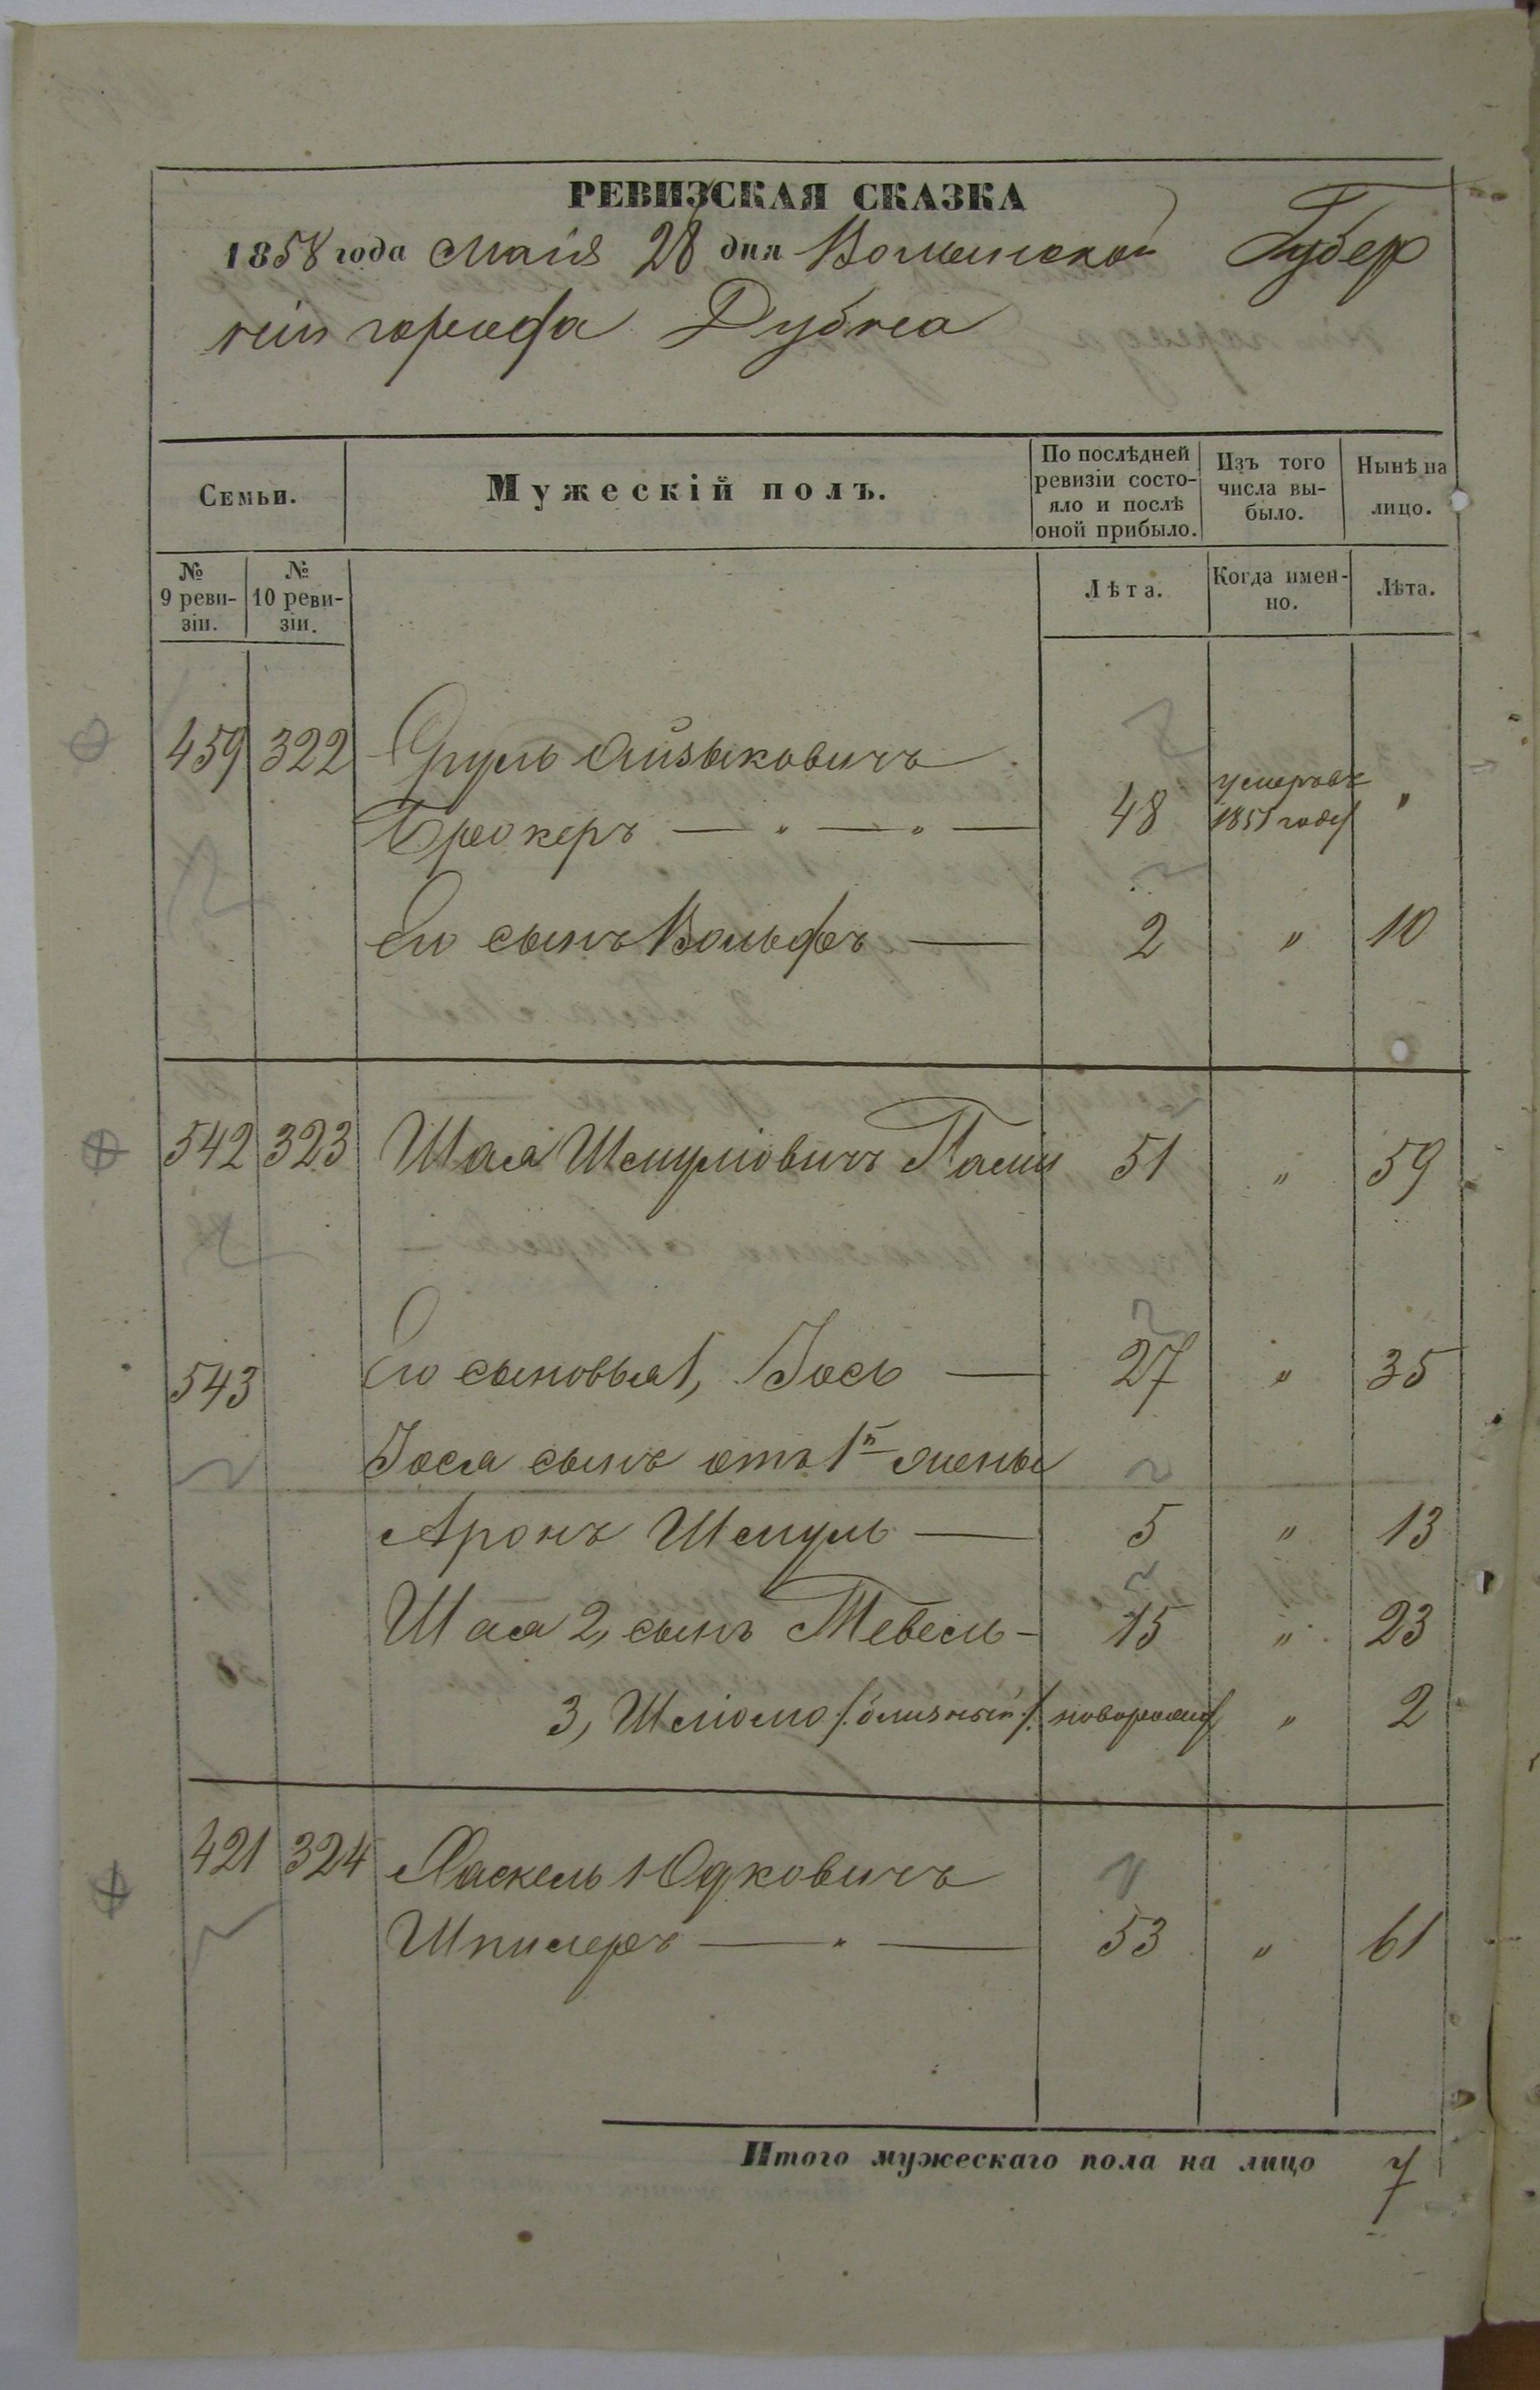 РЕВИЗСКАЯ СКАЗКА
1858 года Маія 28 дня Волынской Губер
ніи города Дубна
Семьи.
Мужескій полъ.
По послѣдней ревизіи состо-
яло и послѣ оной прибыло.
Изъ того числа вы-
было.
Нынѣ на лицо.
№ 9 реви-
зіи.
№ 10 реви-
зіи.
Лѣта.
Когда имен-
но.
Лѣта.
459 322 Сруль Айзыковичъ
Брокеръ — " — " — 48 умеръ въ 1851 году "
Его сынъ Вольфъ — 2 " 10
542 323 Шая Шмуліовичъ 51 " 59
543 Его сыновья 1, Іось — 27 " 35
Іося сынъ отъ 1й жены
Аронъ Шмуль — 5 " 13
Шая 2, сынъ Тевель - 15 " 23
3, Шліомо /:близный:/ новорожд " 2
421 324 Хаскель Юдковичъ
Шпилеръ — " — 53 " 61
Итого мужескаго пола на лицо 7